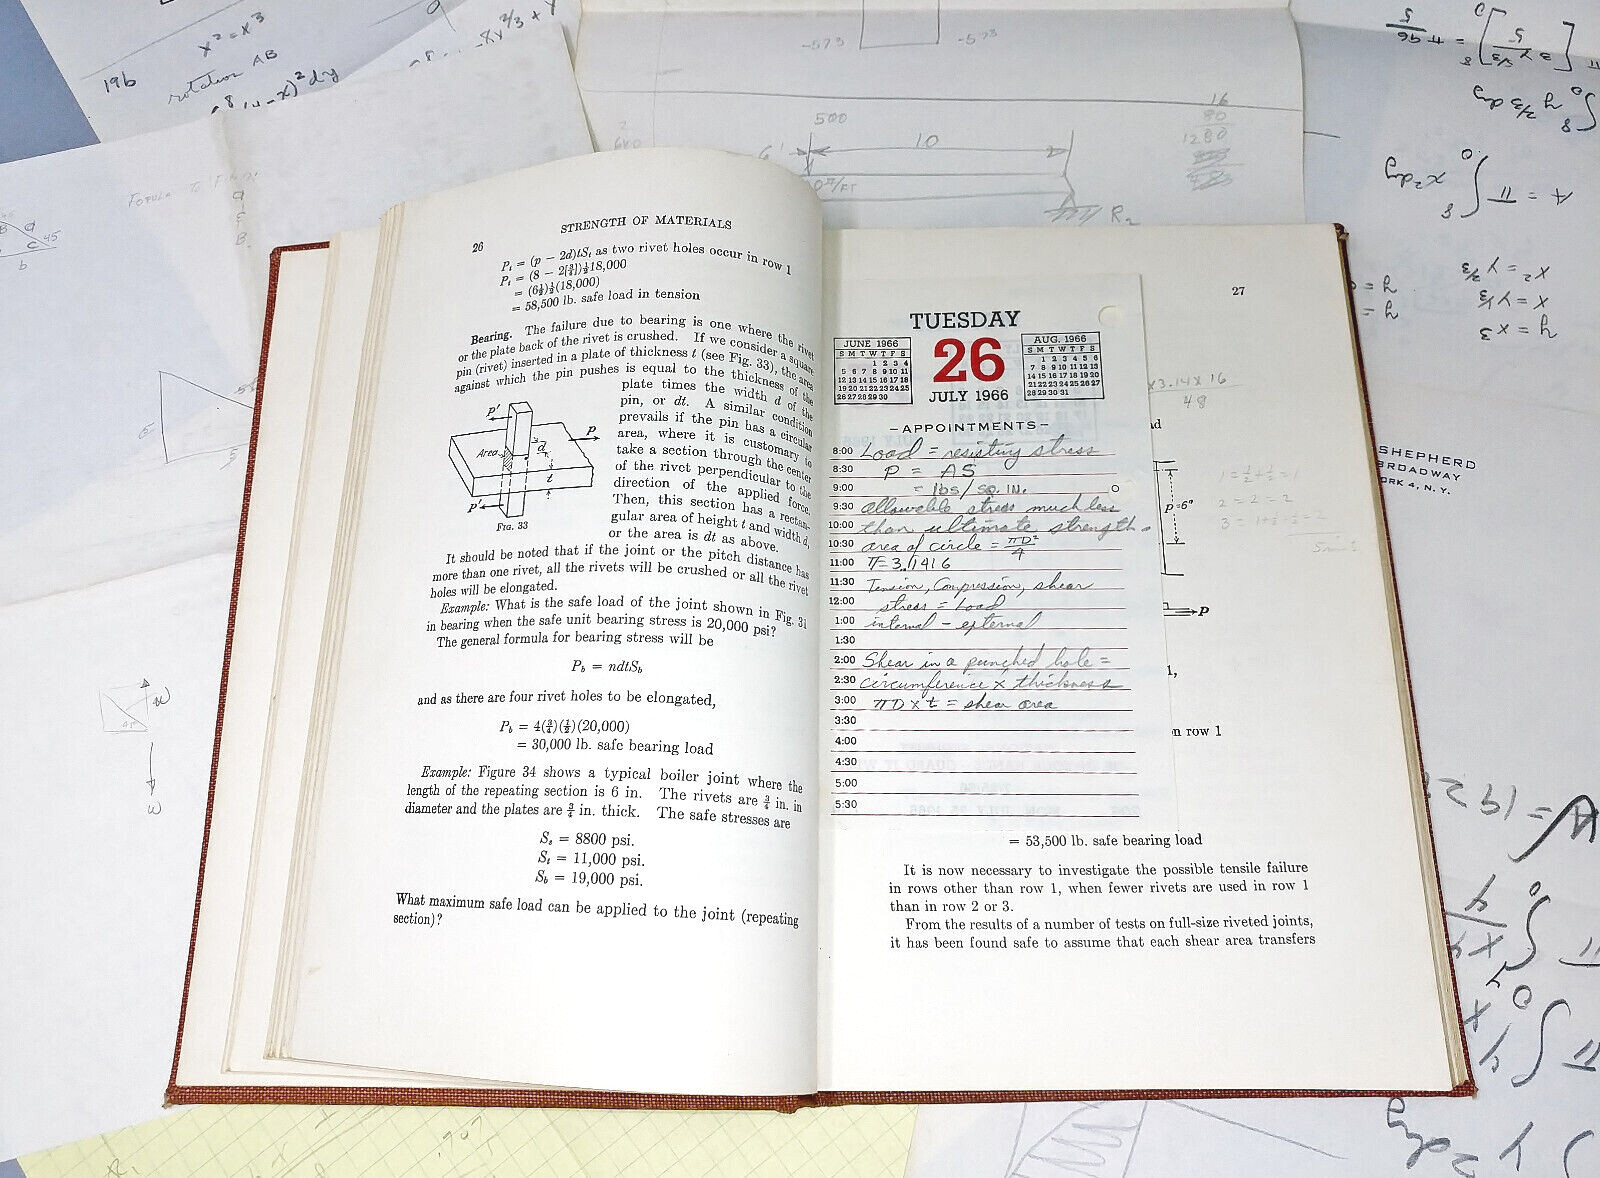 x² = x³
19b
rotation AB
-573
-573
500
10
16
80
1280
R₂
45
b
STRENGTH OF MATERIALS
26
Pₜ = (p − 2d)tSₜ as two rivet holes occur in row 1
Pₜ = (8 − 2[¾])½18,000
= (6½)½(18,000)
= 58,500 lb. safe load in tension
Bearing. The failure due to bearing is one where the rivet
or the plate back of the rivet is crushed. If we consider a square
pin (rivet) inserted in a plate of thickness t (see Fig. 33), the area
against which the pin pushes is equal to the thickness of the
plate times the width d of the
pin, or dt. A similar condition
prevails if the pin has a circular
area, where it is customary to
take a section through the center
of the rivet perpendicular to the
direction of the applied force.
Then, this section has a rectan-
gular area of height t and width d,
or the area is dt as above.
P'
P
Area
d
t
P'
Fig. 33
It should be noted that if the joint or the pitch distance has
more than one rivet, all the rivets will be crushed or all the rivet
holes will be elongated.
Example: What is the safe load of the joint shown in Fig. 31
in bearing when the safe unit bearing stress is 20,000 psi?
The general formula for bearing stress will be
P_b = ndtS_b
and as there are four rivet holes to be elongated,
P_b = 4(¾)(½)(20,000)
= 30,000 lb. safe bearing load
Example: Figure 34 shows a typical boiler joint where the
length of the repeating section is 6 in. The rivets are ¾ in. in
diameter and the plates are ¾ in. thick. The safe stresses are
Sₛ = 8800 psi.
Sₜ = 11,000 psi.
S_b = 19,000 psi.
What maximum safe load can be applied to the joint (repeating
section)?
27
TUESDAY
26
JULY 1966
JUNE 1966
S M T W T F S
1 2 3 4
5 6 7 8 9 10 11
12 13 14 15 16 17 18
19 20 21 22 23 24 25
26 27 28 29 30
AUG. 1966
S M T W T F S
1 2 3 4 5 6
7 8 9 10 11 12 13
14 15 16 17 18 19 20
21 22 23 24 25 26 27
28 29 30 31
-APPOINTMENTS-
8:00 Load = resisting stress
8:30 P = AS
9:00 = lbs/sq.in.
9:30 allowable stress much less
10:00 than ultimate strength.
10:30 area of circle = πD²/4
11:00 π = 3.1416
11:30 Tension, Compression, shear
12:00 stress = Load
1:00 internal - external
1:30
2:00 Shear in a punched hole =
2:30 circumference x thickness
3:00 πD x t = shear area
3:30
4:00
4:30
5:00
5:30
p=6"
P
n row 1
= 53,500 lb. safe bearing load
It is now necessary to investigate the possible tensile failure
in rows other than row 1, when fewer rivets are used in row 1
than in row 2 or 3.
From the results of a number of tests on full-size riveted joints,
it has been found safe to assume that each shear area transfers
x3.14 x 16
48
SHEPHERD
BROADWAY
ORK 4, N. Y.
x² = y^2/3
x = y^1/3
y = x³
.907
R₁